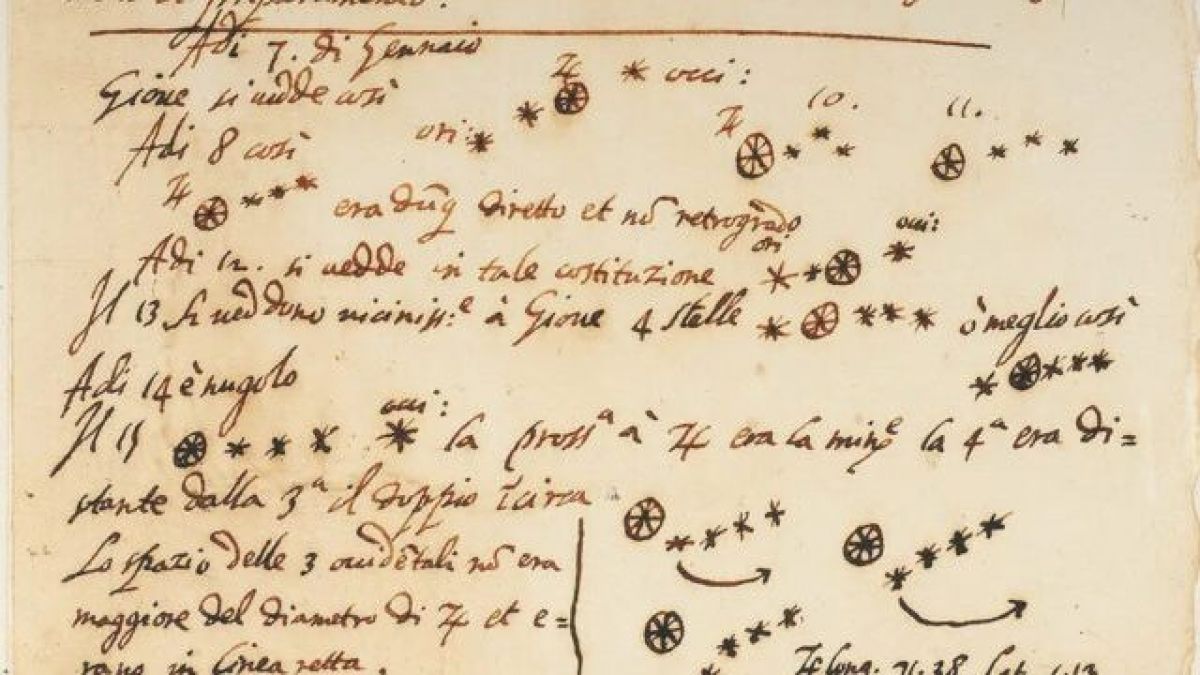 Adi 7. di Gennaio
Gioue si uedde così
♃ * occi:
ori:
Adi 8 così
♃ 10. 11.
♃
era dūq diretto et nō retrogrado
Adi 12. si uedde in tale costituzione
ori
occi:
Il 13 si ueddono uiciniss:e à Gioue 4 stelle
ò meglio così
Adi 14 è nugolo
Il 15
occi:
la pross.a à ♃ era la min.e la 4.a era di=
stante dalla 3.a il doppio circa
Lo spazio delle 3 occidētali nō era
maggiore del diametro di ♃ et e=
rano in linea retta.
♃ long. 71.38 lat. 1.13